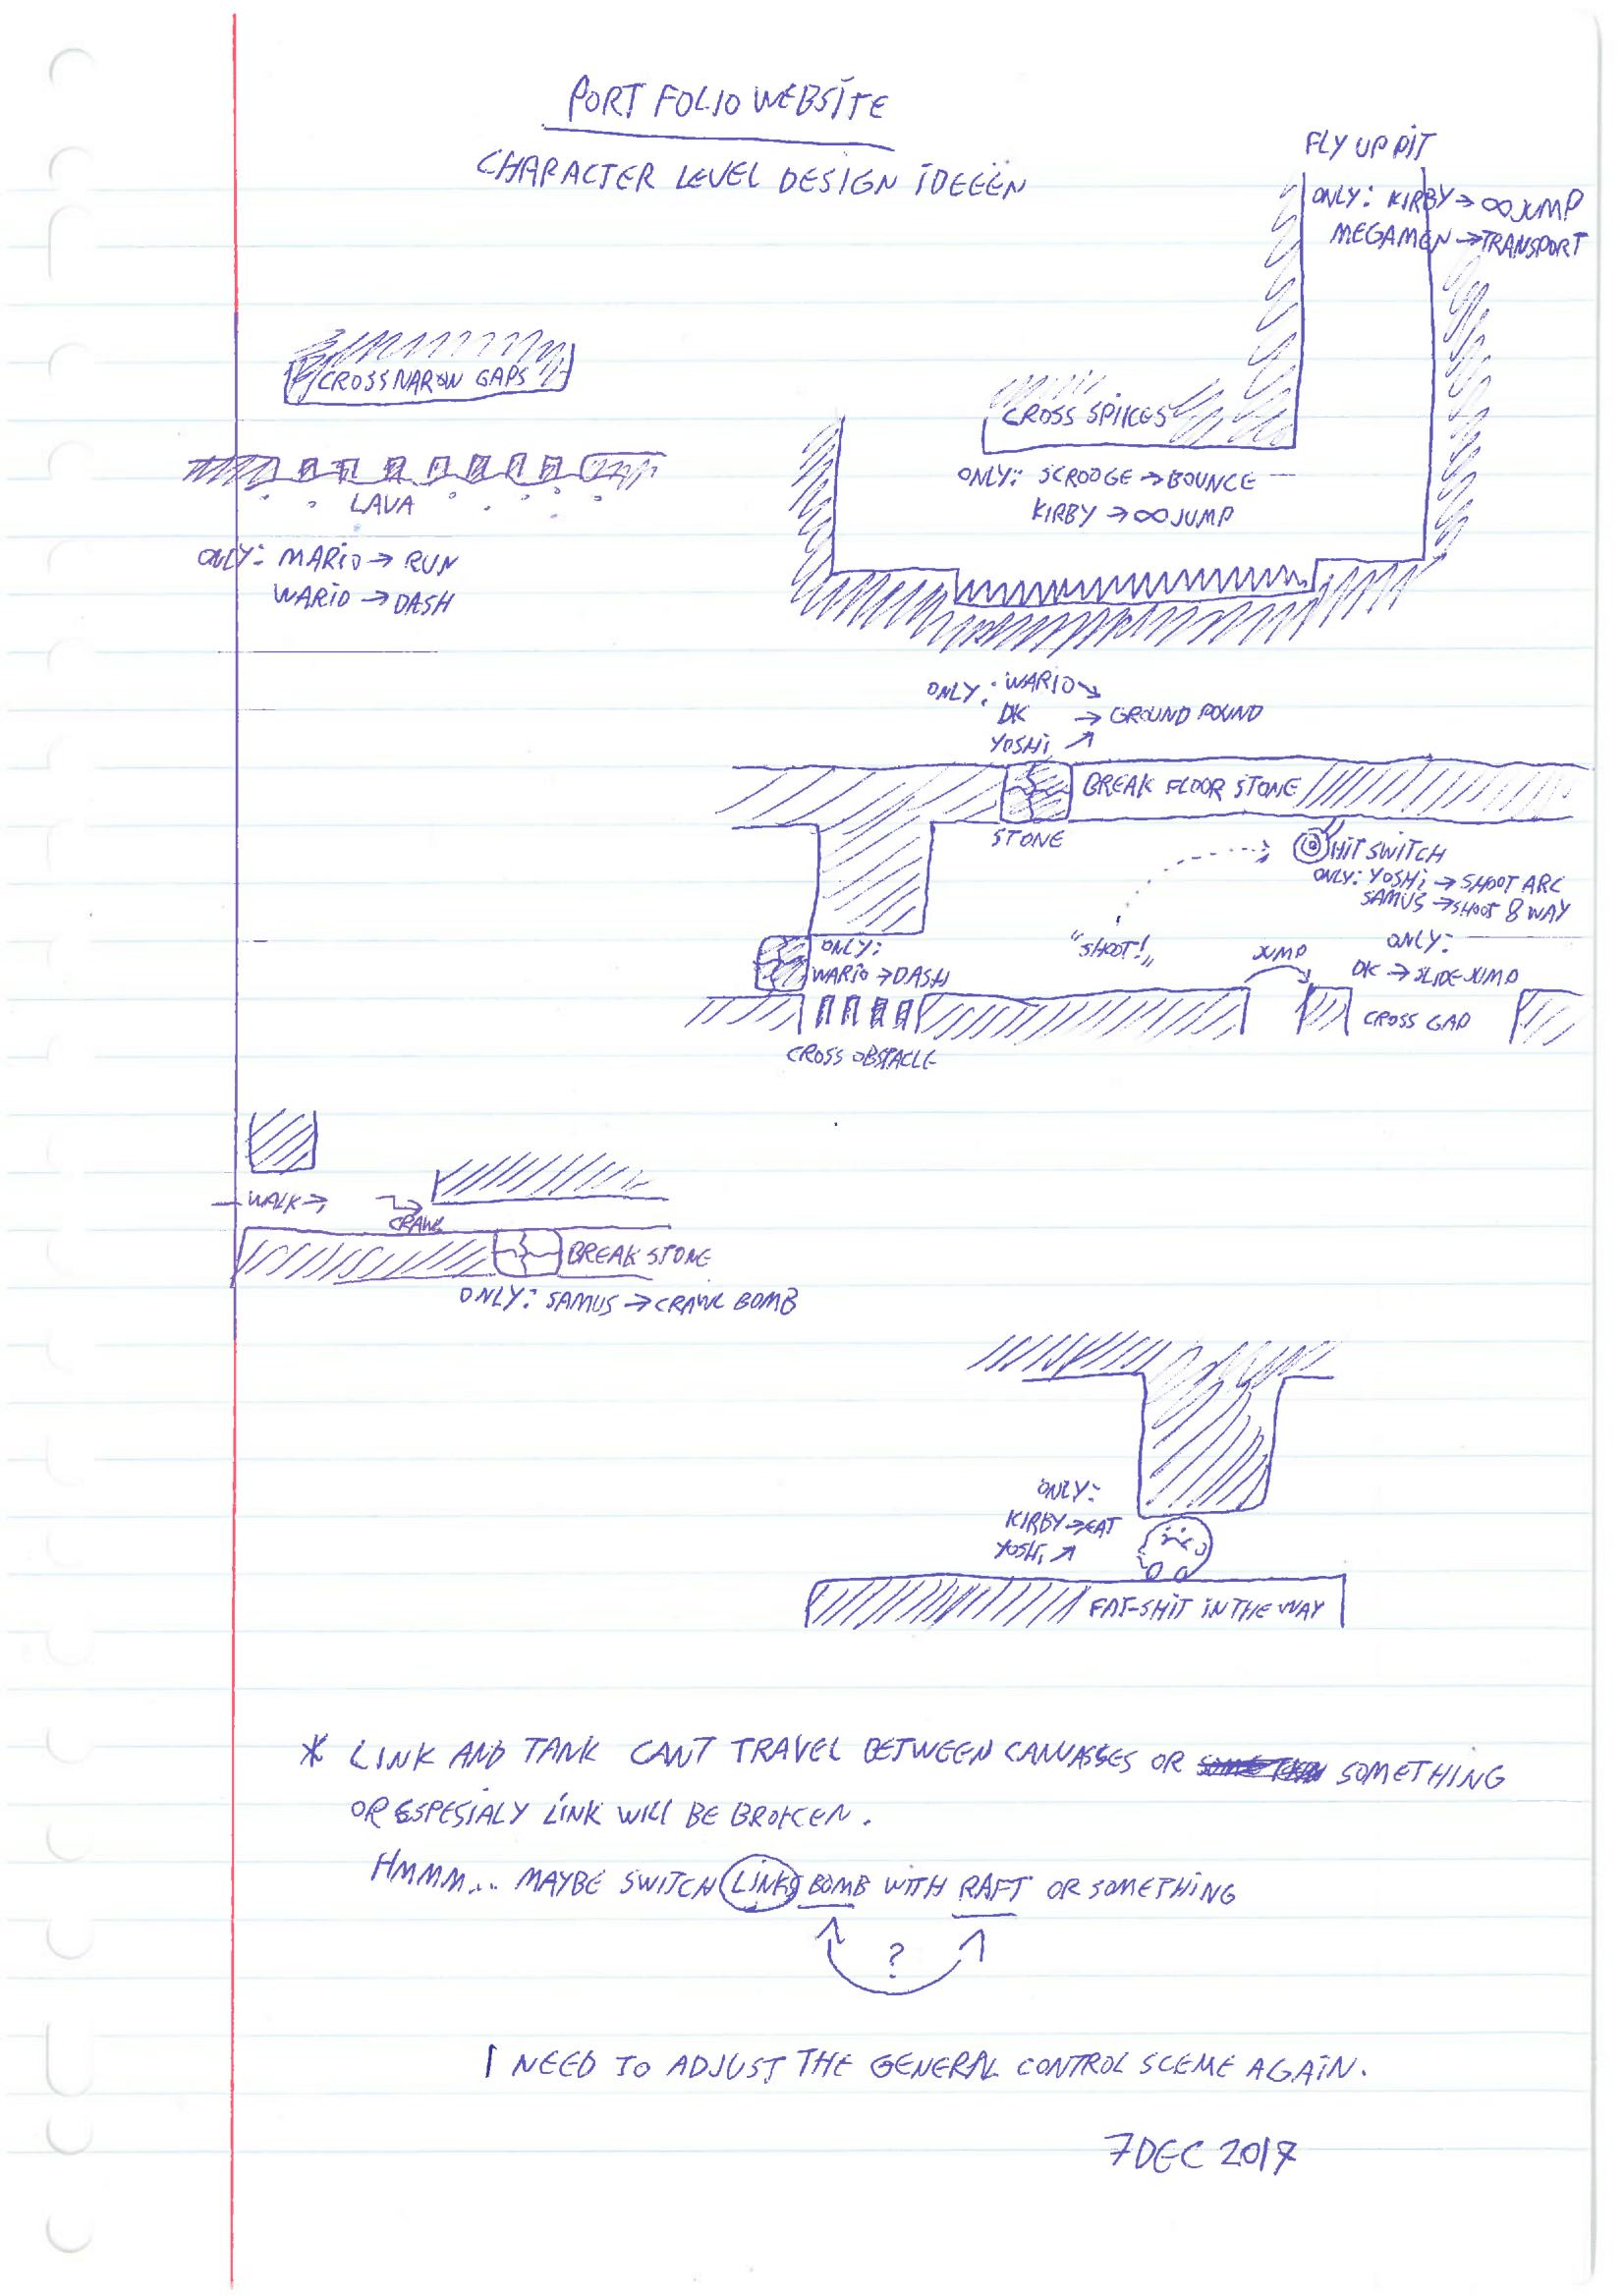 PORT FOLIO WEBSITE
CHARACTER LEVEL DESIGN IDEEËN
FLY UP PIT
ONLY: KIRBY → ∞ JUMP
MEGAMEN → TRANSPORT
CROSS NAROW GAPS
LAVA
ONLY: MARIO → RUN
WARIO → DASH
CROSS SPIKES
ONLY: SCROOGE → BOUNCE
KIRBY → ∞ JUMP
ONLY: WARIO ↘
DK → GROUND POUND
YOSHI ↗
BREAK FLOOR STONE
STONE
HIT SWITCH
ONLY: YOSHI → SHOOT ARC
SAMUS → SHOOT 8 WAY
"SHOOT!„
ONLY:
WARIO → DASH
CROSS OBSTACLE
JUMP
ONLY:
DK → SLIDE JUMP
CROSS GAP
WALK →
CRAWL
BREAK STONE
ONLY: SAMUS → CRAWL BOMB
ONLY:
KIRBY → EAT
YOSHI ↗
FAT-SHIT IN THE WAY
* LINK AND TANK CANT TRAVEL BETWEEN CANVASSES OR SOMETHING
OR ESPESIALY LINK WILL BE BROKEN.
HMMM... MAYBE SWITCH LINKS BOMB WITH RAFT OR SOMETHING
?
I NEED TO ADJUST THE GENERAL CONTROL SCEME AGAIN.
7 DEC 2017